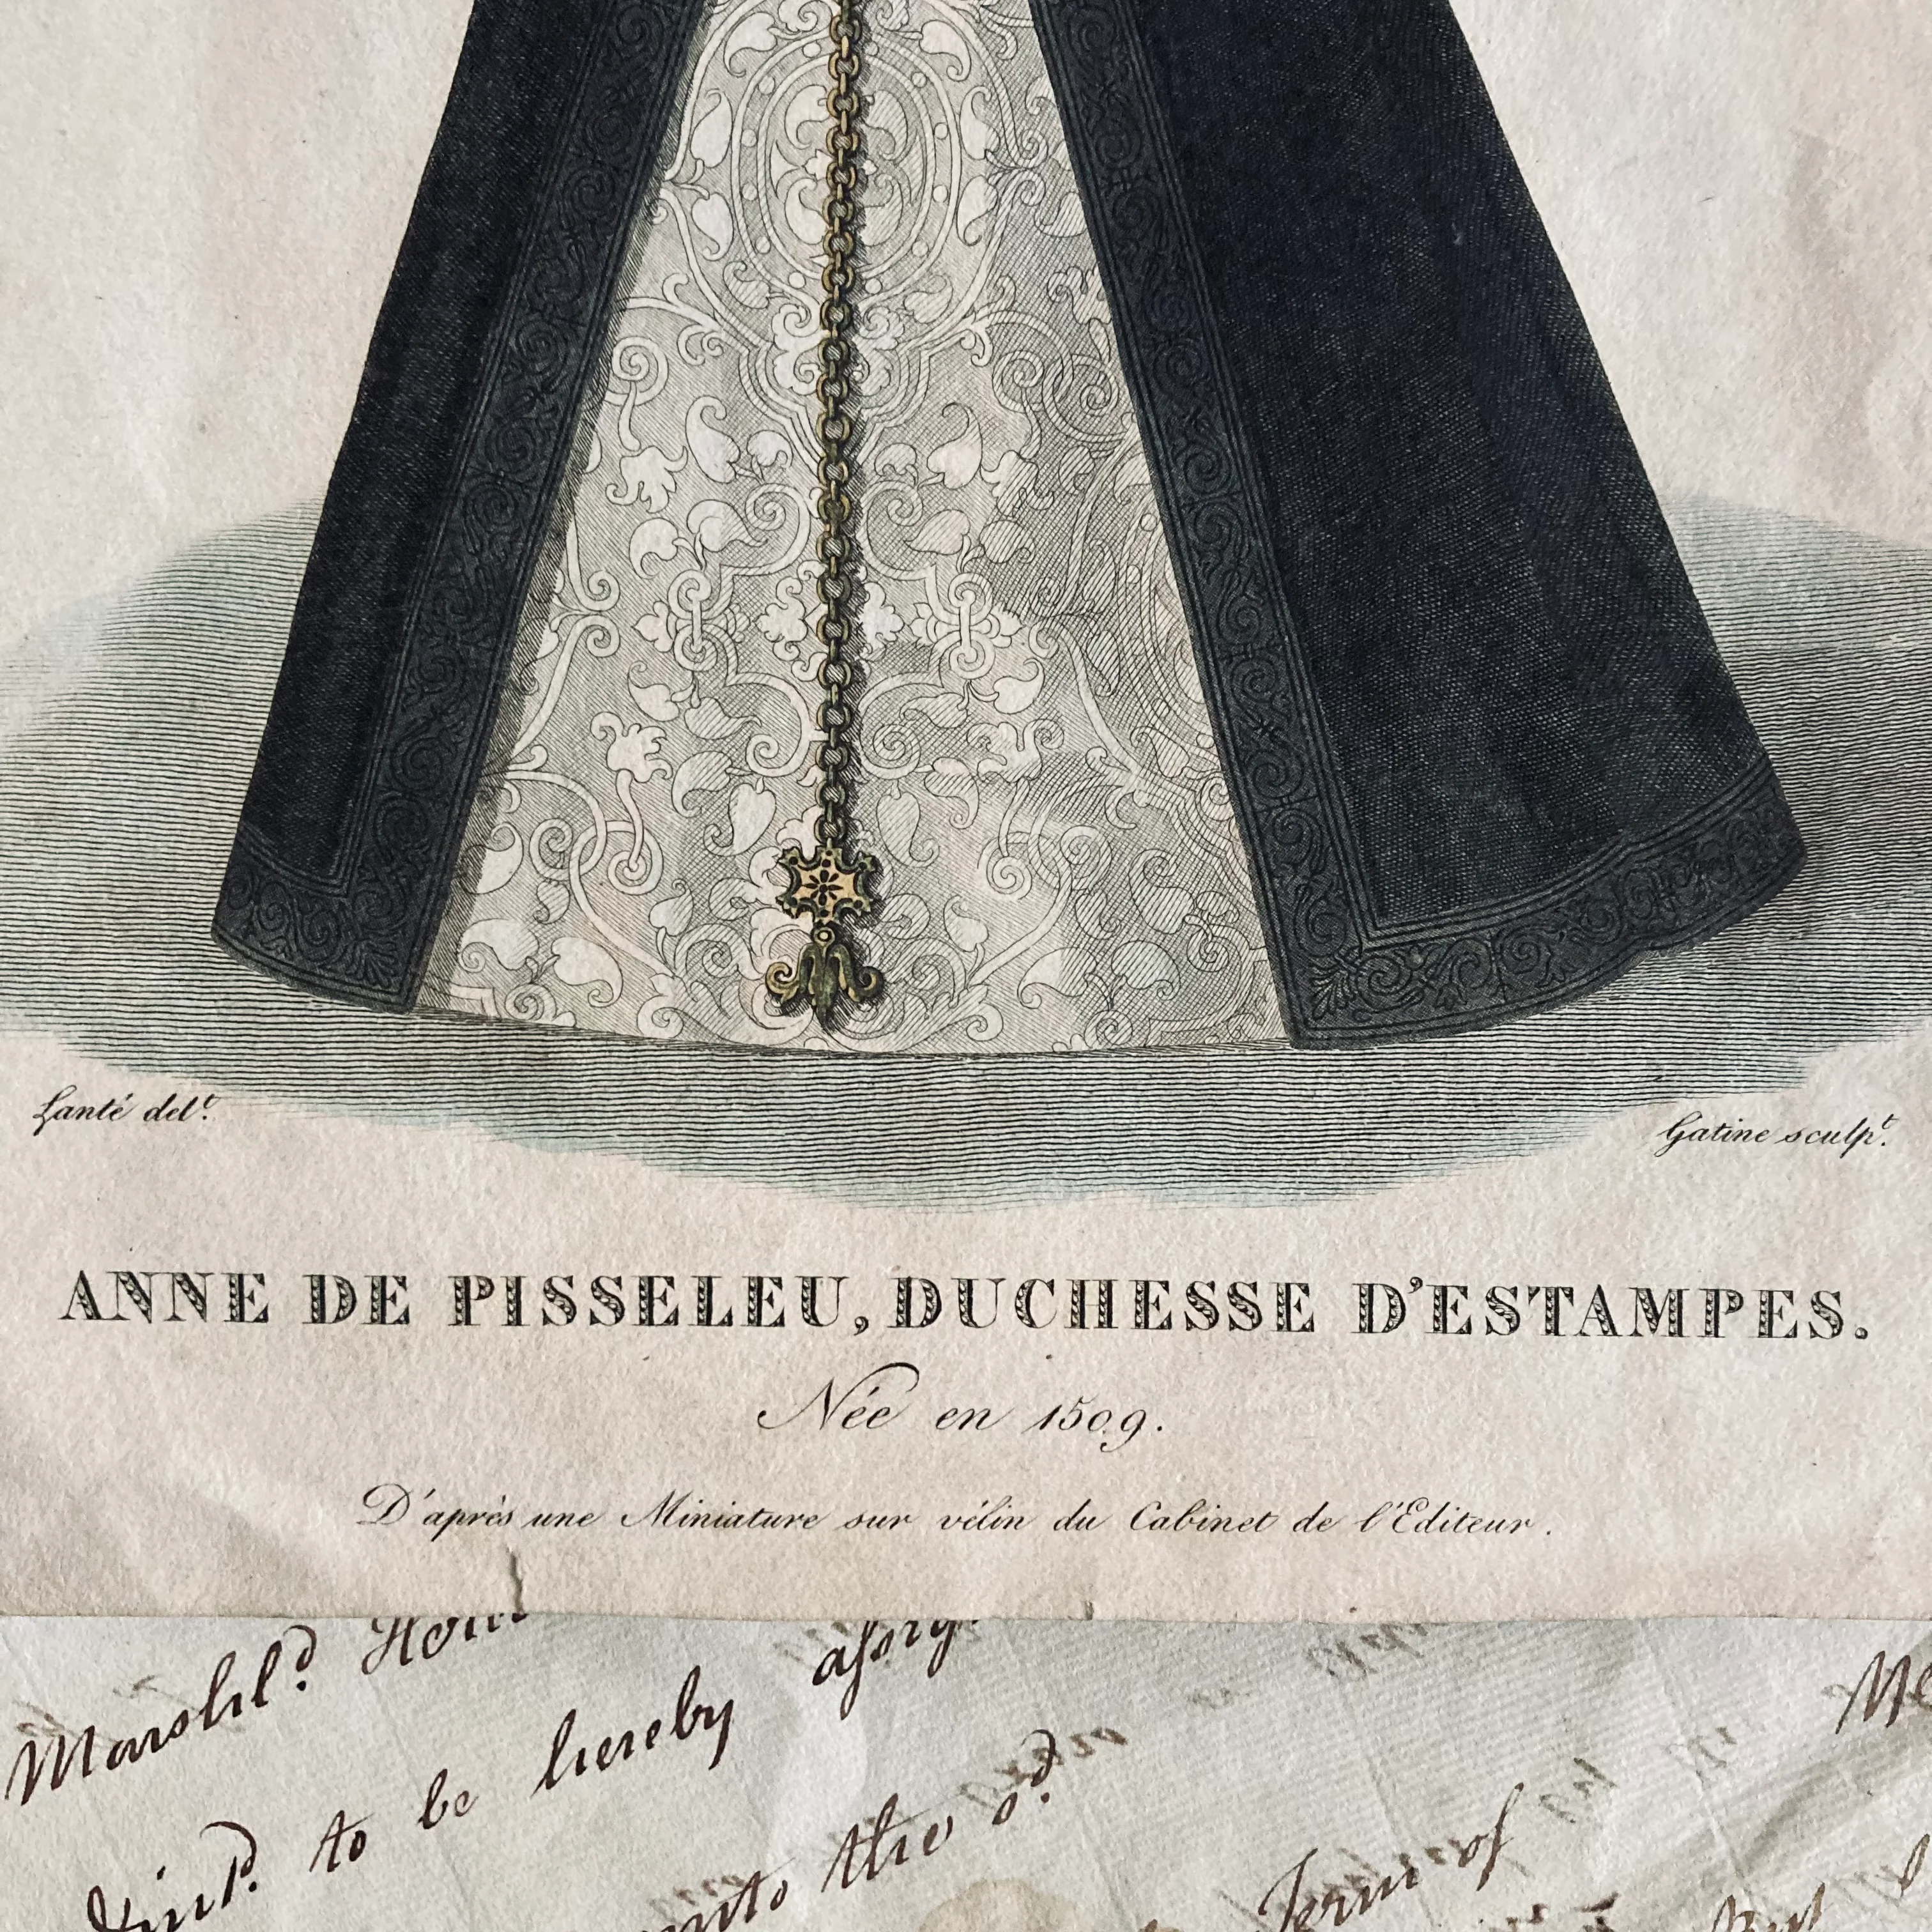 Lanté del.t
Gatine sculp.t
ANNE DE PISSELEU, DUCHESSE D'ESTAMPES.
Née en 1509.
D'après une Miniature sur vélin du Cabinet de l'Editeur.
to be hereby
the s.d
Term of